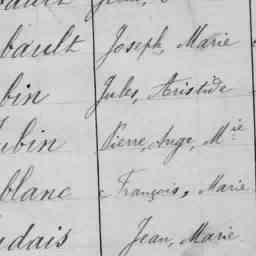 bault Joseph, Marie
bin Jules, Aristide
ubin Pierre, Ange, Mie
blanc François, Marie
udais Jean, Marie